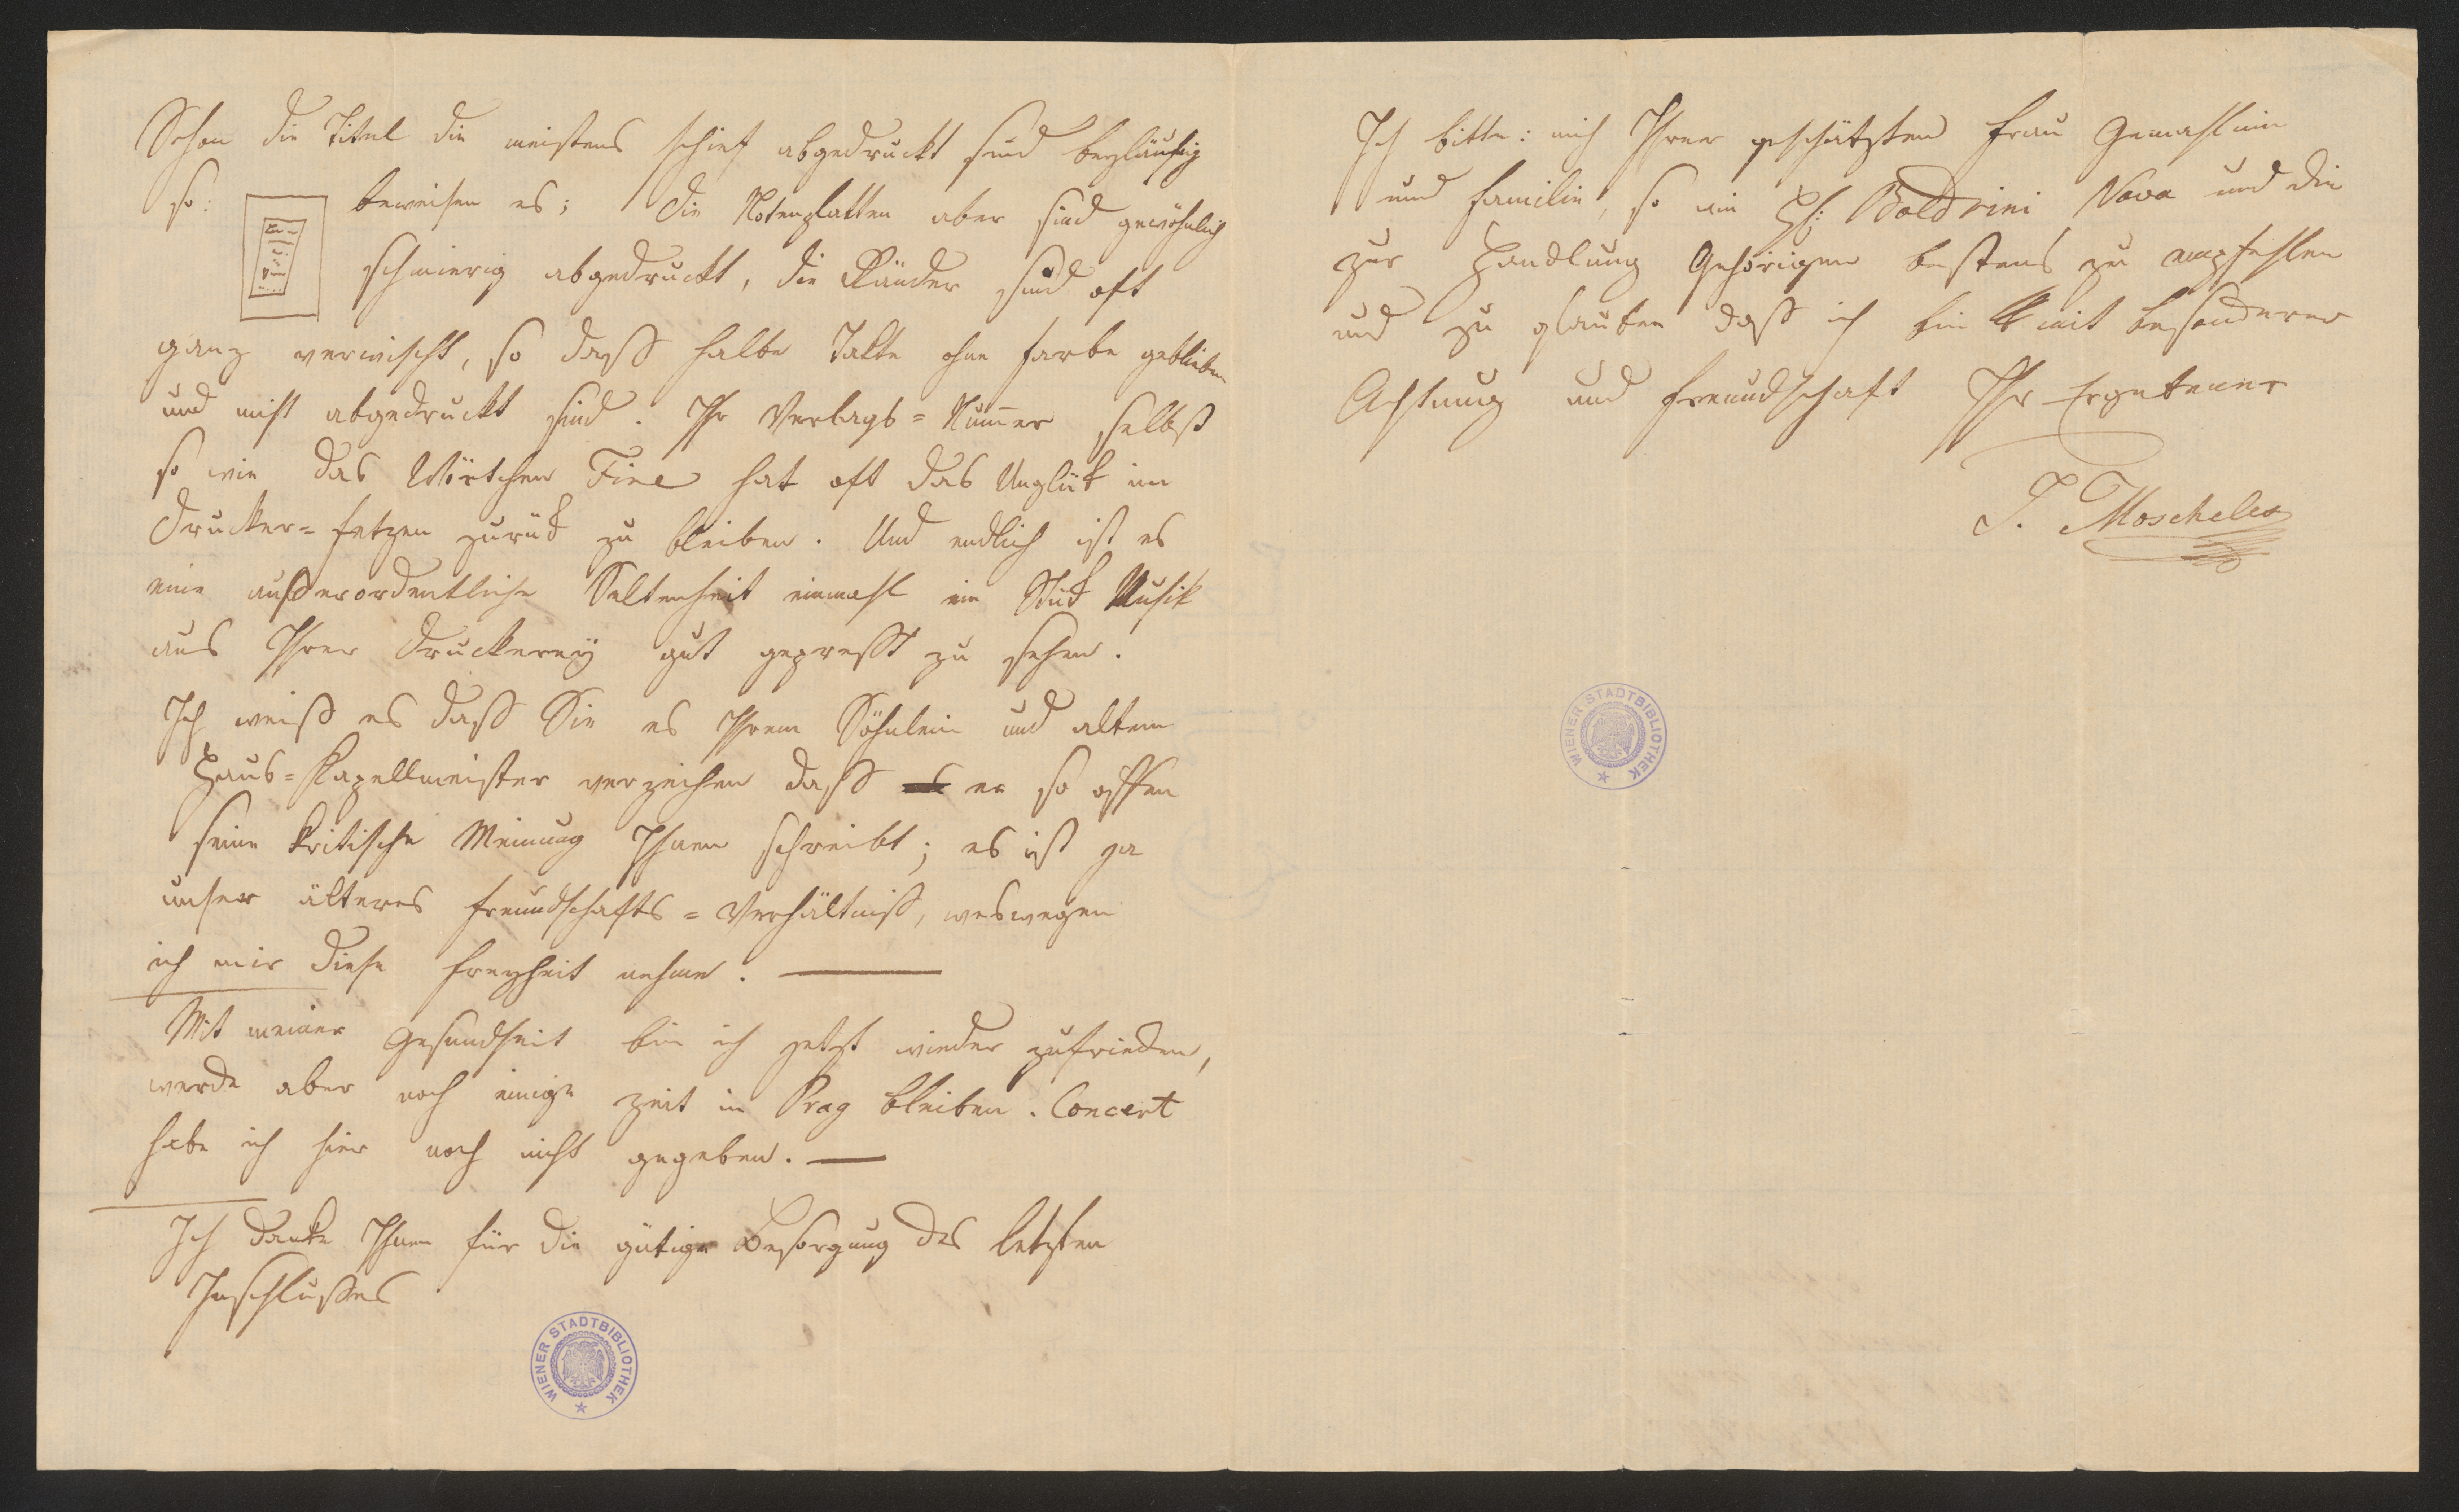 Schon die Titel die meistens schief abgedruckt sind beyläufig
so: beweisen es; die Notenplatten aber sind gewöhnlich
schmierig abgedruckt, die Ränder sind oft
ganz verwischt, so daß halbe Takte ohne Farbe geblieben
und nicht abgedruckt sind. Ihr Verlags=Num̅er selbst
so wie das Wörtchen Fine hat oft das Unglük im
Drucker=fetzen zurük zu bleiben. Und endlich ist es
eine außerordentliche Seltenheit einmahl ein Stük Musik
aus Ihrer Druckerey gut gepreßt zu sehen.
Ich weiß es daß Sie es Ihrem Söhnlein und altem
Haus=Kapellmeister verzeihen daß er so offen
seine kritische Meinung Ihnen schreibt; es ist ja
unser älteres Freundschafts=Verhältniß, weswegen
ich mir diese Freyheit nehme. —
Mit meiner Gesundheit bin ich jetzt wieder zufrieden,
werde aber noch einige Zeit in Prag bleiben. Concert
habe ich hier noch nicht gegeben. —
Ich danke Ihnen für die gütige Besorgung des letzten
Inschlußes
WIENER STADTBIBLIOTHEK
Ich bitte: mich Ihrer geschätzten Frau Gemahlinn
und Familie, so wie H: Boldrini Nova und die
zur Handlung Gehörigen bestens zu empfehlen
und zu glauben daß ich bin mit besonderer
Achtung und Freundschaft Ihr Ergebener
J. Moscheles
WIENER STADTBIBLIOTHEK